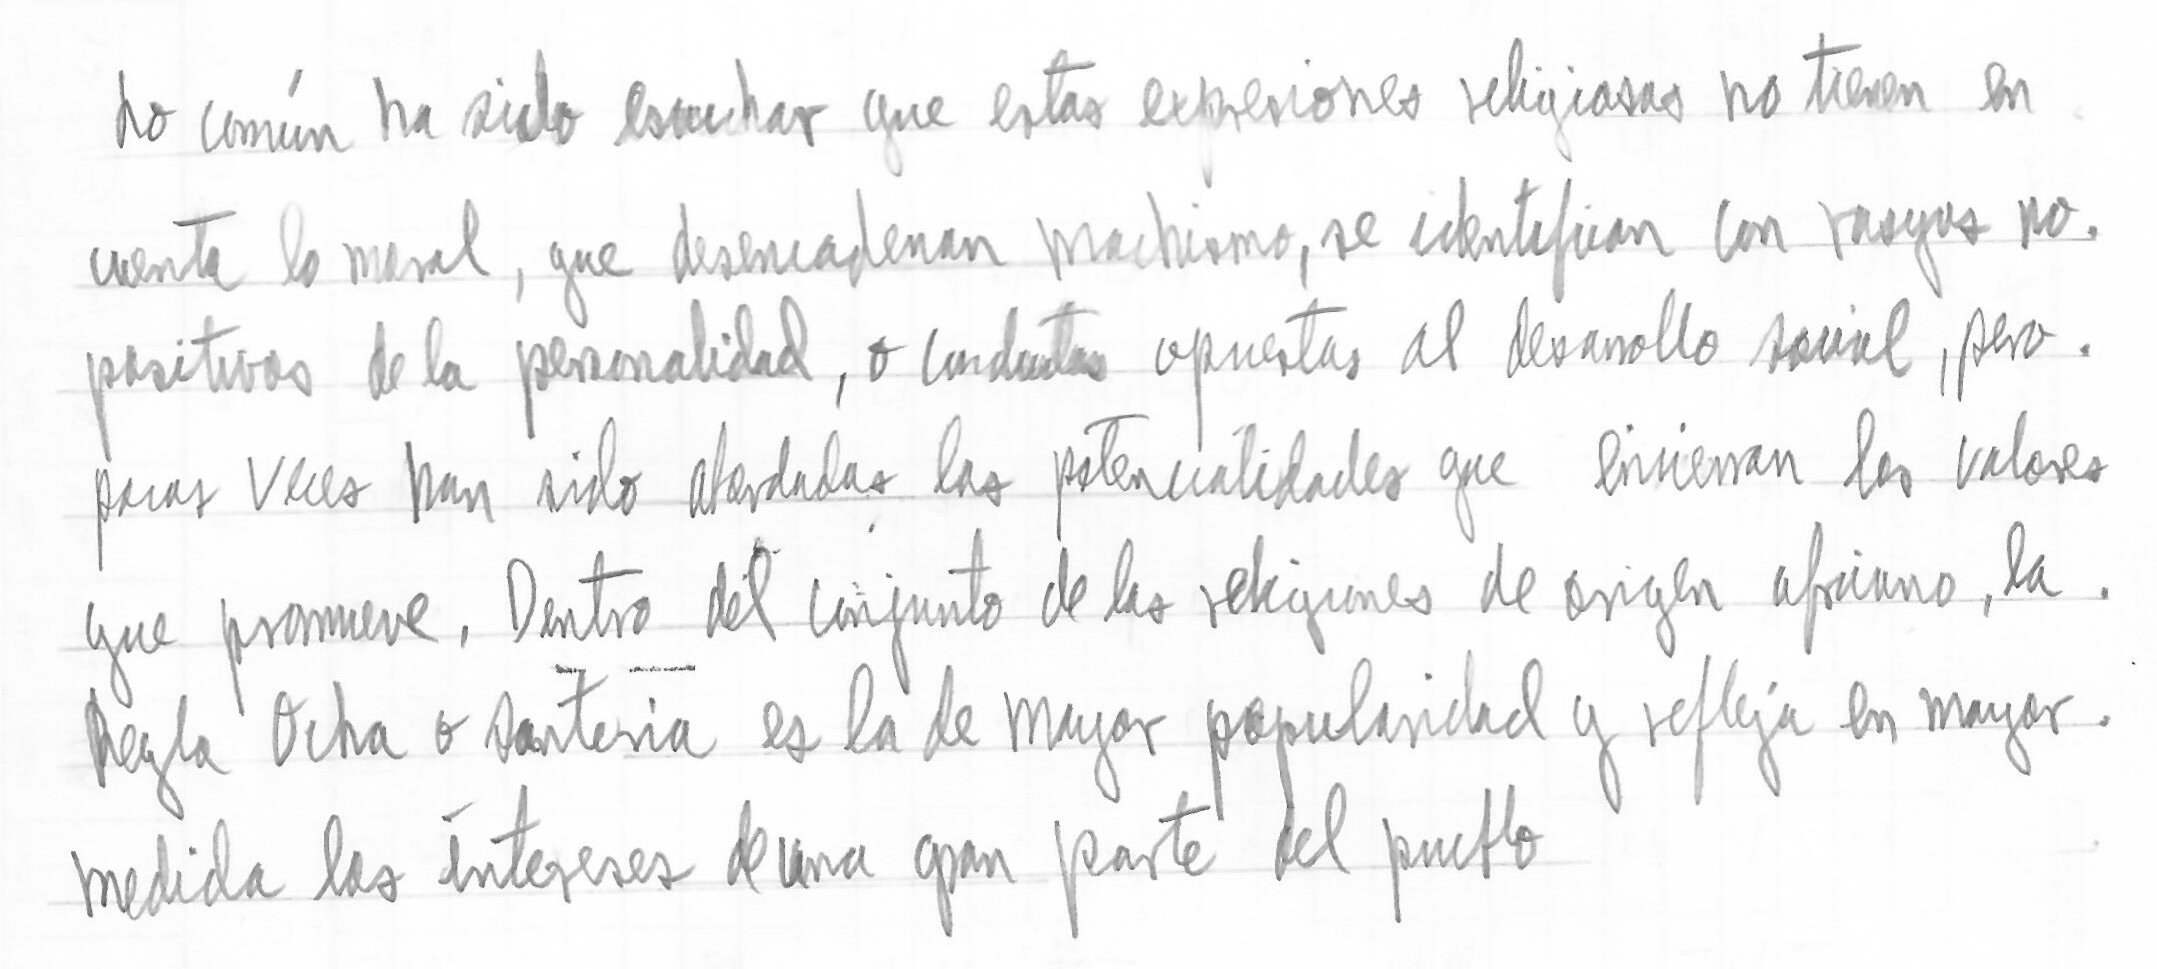 Lo común ha sido escuchar que estas expresiones religiosas no tienen en
cuenta lo moral, que desencadenan machismo, se identifican con rasgos no.
positivos de la personalidad, o conductas opuestas al desarrollo social, pero.
pocas veces han sido abordadas las potencialidades que encierran los valores
que promueve. Dentro del conjunto de las religiones de origen africano, la.
Regla Ocha o santeria es la de mayor popularidad y refleja en mayor.
medida los intereses de una gran parte del pueblo